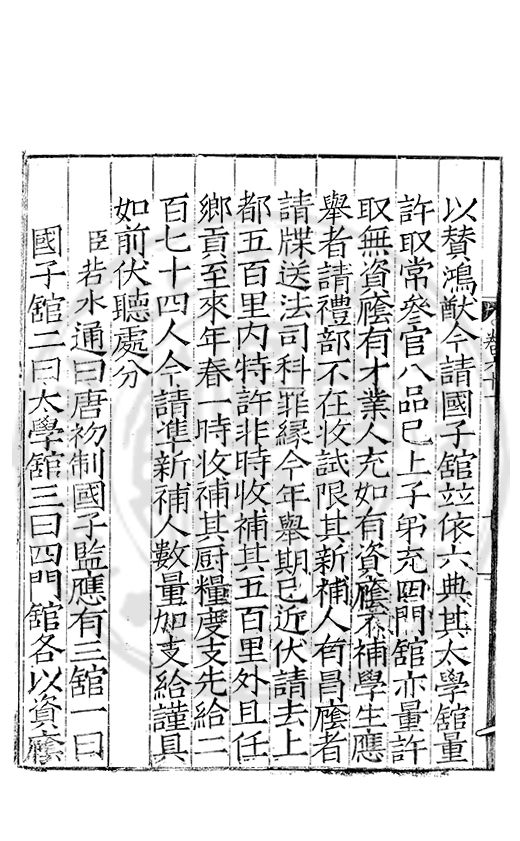 以贊鴻猷今請國子舘並依六典其太學舘量
許取常參官八品已上子弟充四門舘亦量許
取無資廕有才業人充如有資廕不補學生應
舉者請禮部不在收試限其新補人有冒廕者
請牒送法司科罪緣今年舉期已近伏請去上
都五百里内特許非時收補其五百里外且任
鄉貢至來年春一時收補其厨糧度支先給二
百七十四人今請準新補人數量加支給謹具
如前伏聽處分
臣若水通曰唐初制國子監應有三舘一曰
國子舘二曰太學舘三曰四門舘各以資廕